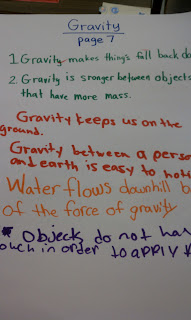 Gravity
page 7
1. Gravity makes thing's fall back do
2. Gravity is sronger between objects
that have more mass.
Gravity keeps us on the
ground.
Gravity between a perso
and earth is easy to noti
Water flows downhill b
of the force of gravity
* Objects do not hav
ouch in order to apply